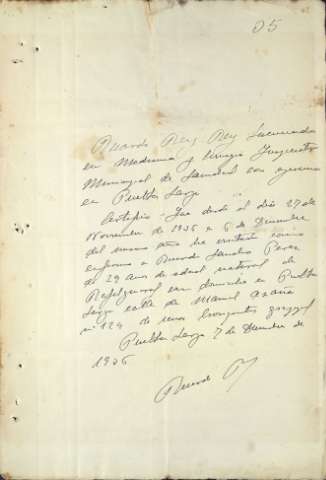 05
Ricardo Rey Rey Licenciado
en Medicina y Cirugía Inspector
Municipal de Sanidad con ejercicio
en Puebla Larga
Certifico: Que desde el día 27 de
Noviembre de 1936 a 6 de Diciembre
del mismo año he visitado como
enfermo a Ricardo Sancho Peres
de 29 años de edad natural de
Rafelguaraf con domicilio en Puebla
Larga calle de Manuel Azaña
nº 124 de una
Puebla Larga 7 de Diciembre de
1936
Ricardo